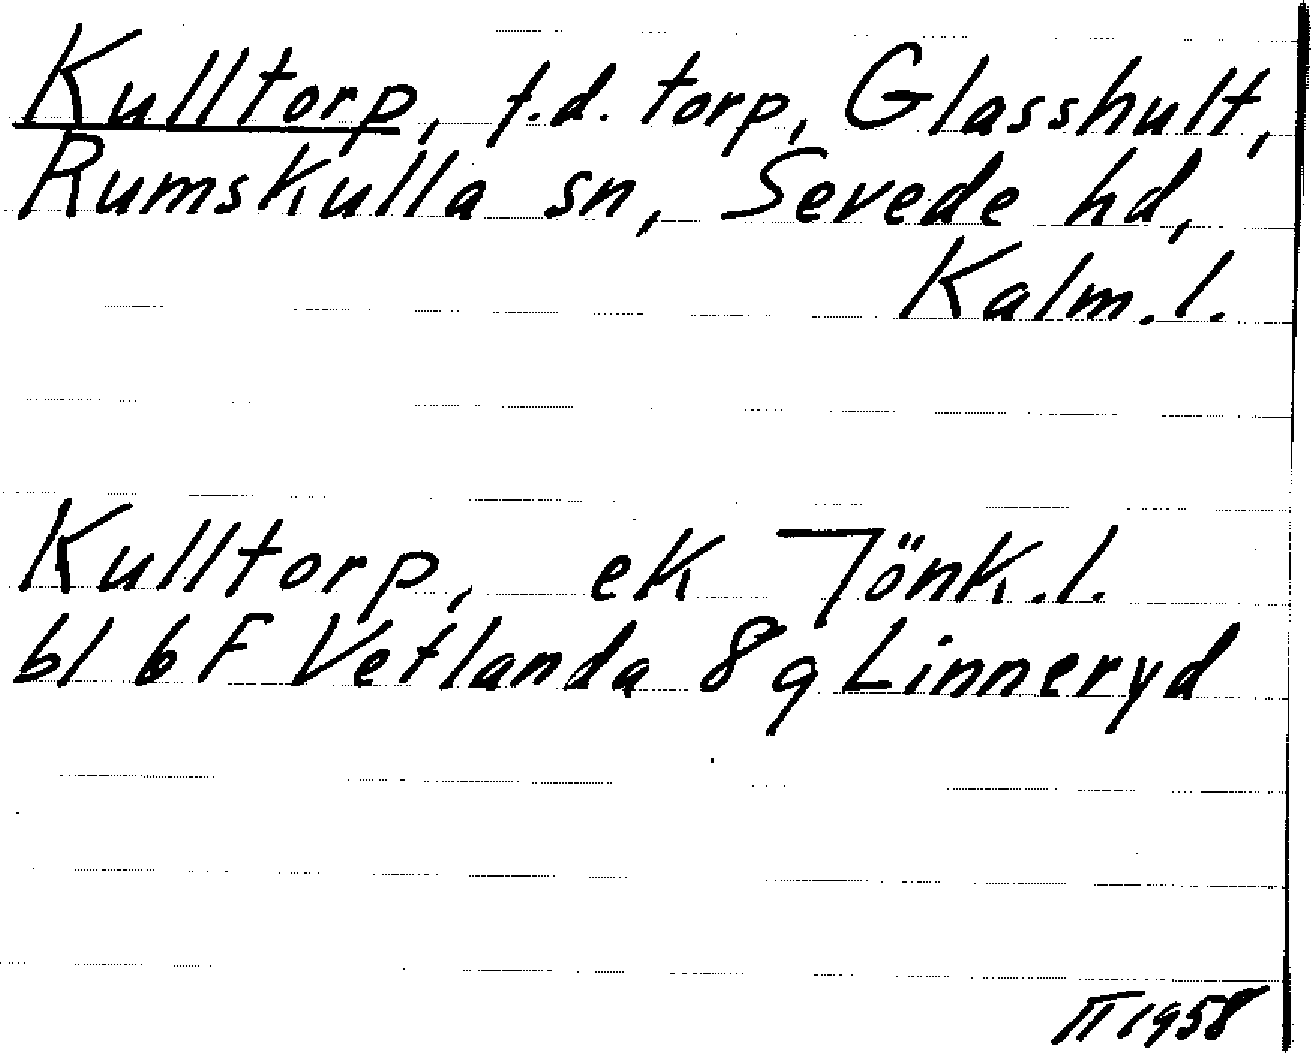 Kulltorp, f.d. torp, Glasshult,
Rumskulla sn, Sevede hd,
Kalm.l.
Kulltorp, ek Jönk.l.
bl 6 F Vetlanda 8 g Linneryd
II 1958